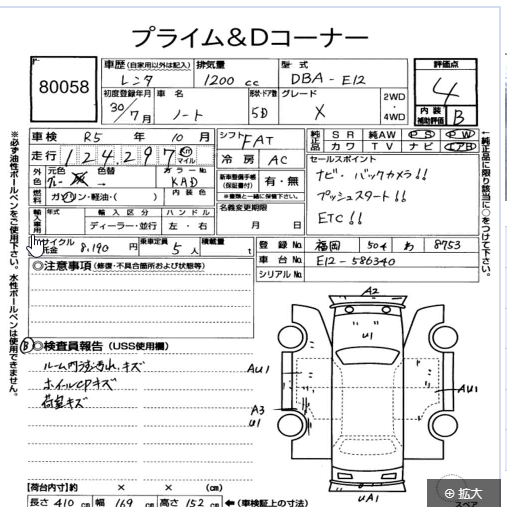 プライム&Dコーナー
80058
車歴 (自家用以外は記入)
レンタ
排気量
1200 cc
型 式
DBA-E12
評価点
4
初度登録年月
30/7月
車 名
ノート
形状・ドア数
5D
グレード
X
2WD
・
4WD
内 装
補助評価
B
車 検 R5 年 10 月
シフト FAT
純正品
S R 純AW P S P W
カワ T V ナビ エアB
走 行 124,297 km マイル
冷 房 AC
セールスポイント
ナビ・バックカメラ!!
プッシュスタート!!
ETC!!
外色 元色 グレー 色替 → カラーNo. KAD
燃料 ガソリン・軽油・( ) 内 装 色
新車整備手帳
(保証書付) 有・無
※書類と一緒に保管下さい。
名義変更期限
月 日
輸入車用 年式 輸 入 区 分 ハ ン ド ル
ディーラー・並行 左 ・ 右
リサイクル
8,190 円
乗車定員 5 人
積載量 t
登 録 No. 福岡 504 わ 8753
車 台 No. E12-586340
シリアル No.
※必ず油性ボールペンをご使用下さい。水性ボールペンは使用できません。
↑純正品に限り該当に○をつけて下さい。
◎注意事項 (修復・不具合箇所および状態等)
B ◎検査員報告 (USS使用欄)
キズ
ホイールCPキズ
荷室キズ
A2
U1
AU1
AU1
A3
U1
UA1
【荷台内寸】約 × × (cm)
長さ 410 cm 幅 169 cm 高さ 152 cm ←(車検証上の寸法)
スペア
拡大